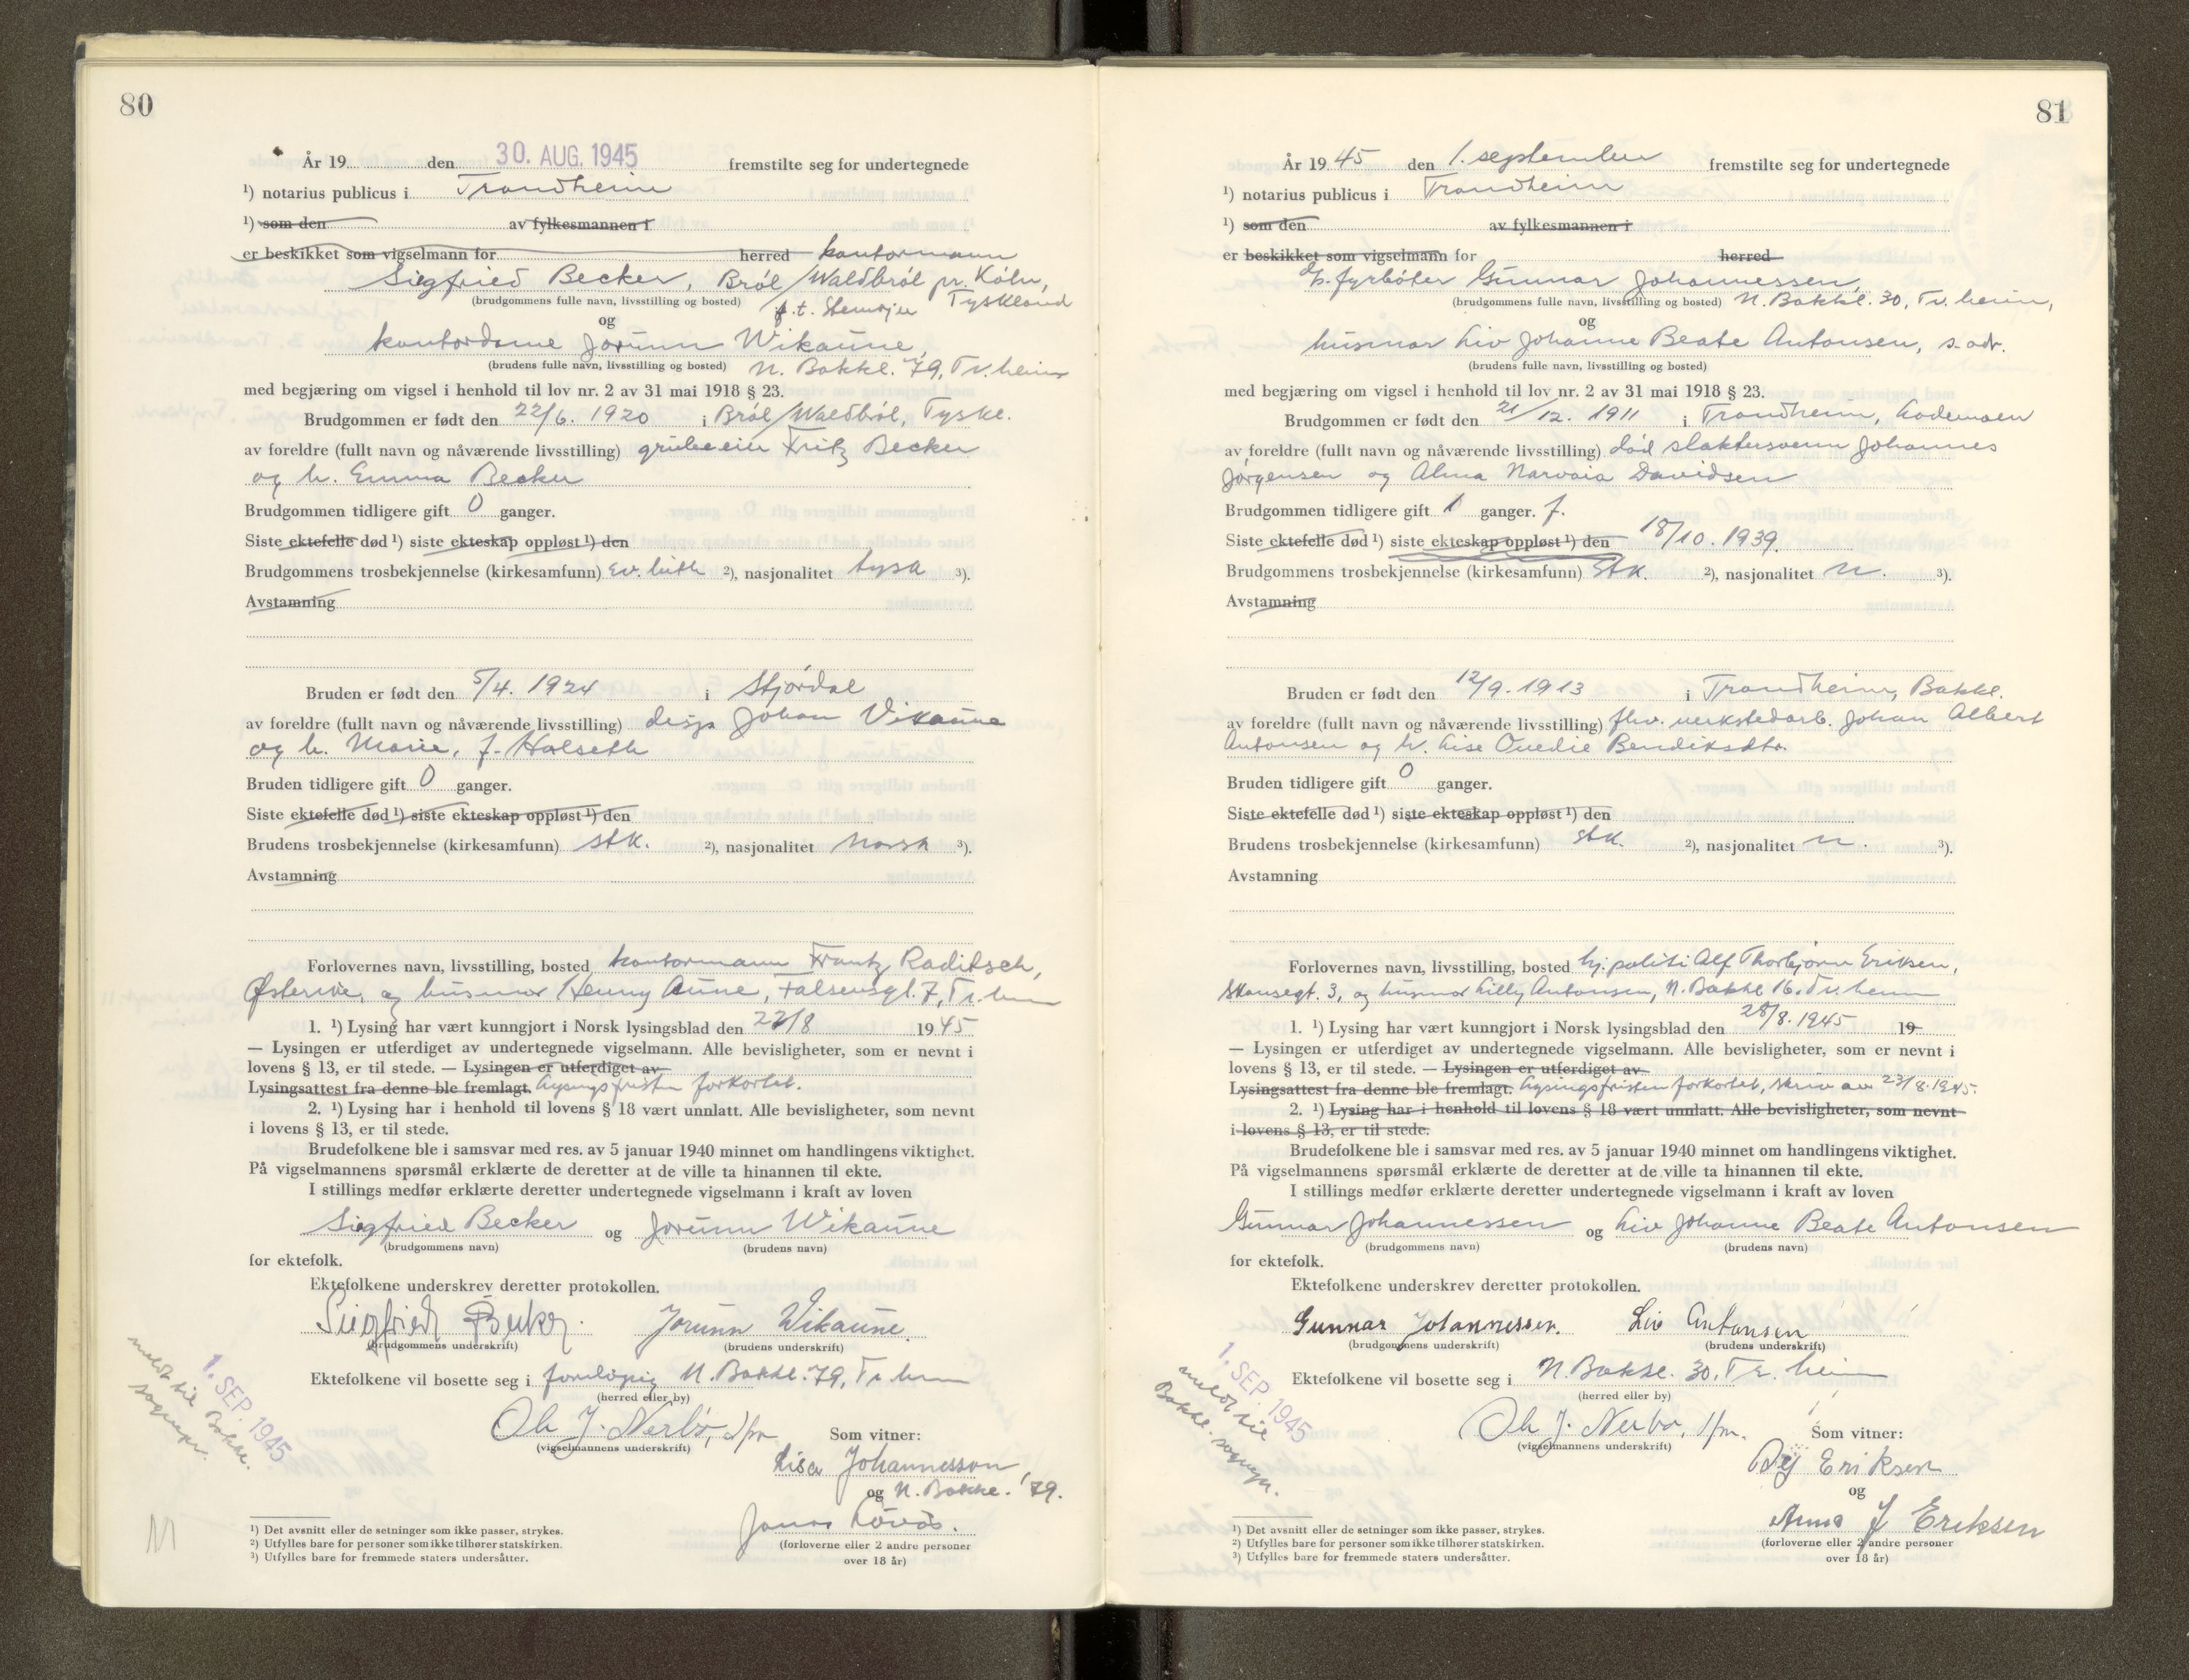 80
År 19 den 30. AUG. 1945 fremstilte seg for undertegnede
¹) notarius publicus i Trondheim
¹) som den av fylkesmannen i
er beskikket som vigselmann for herred kontormann
Siegfried Becker, Bröl/Waldbröl pr. Köln,
(brudgommens fulle navn, livsstilling og bosted) p.t. Tyskland
og
kontordame Jorunn Wikaune
(brudens fulle navn, livsstilling og bosted) N. Bakkl. 79, Tr.heim
med begjæring om vigsel i henhold til lov nr. 2 av 31 mai 1918 § 23.
Brudgommen er født den 22/6. 1920 i Bröl/Waldbröl, Tyskl.
av foreldre (fullt navn og nåværende livsstilling) grubeeier Fritz Becker
og h. Emma Becker
Brudgommen tidligere gift 0 ganger.
Siste ektefelle død ¹) siste ekteskap oppløst ¹) den
Brudgommens trosbekjennelse (kirkesamfunn) ev. luth ²), nasjonalitet tysk ³).
Avstamning
Bruden er født den 5/4. 1924 i Stjørdal
av foreldre (fullt navn og nåværende livsstilling) disp. Johan Vikaune
og h. Marie, f. Halseth
Bruden tidligere gift 0 ganger.
Siste ektefelle død ¹) siste ekteskap oppløst ¹) den
Brudens trosbekjennelse (kirkesamfunn) stk. ²), nasjonalitet norsk ³).
Avstamning
Forlovernes navn, livsstilling, bosted kontormann Frantz Raditsch,
Østerike, og husmor Henny Aune, Falsensgt. 7, Tr.heim
1. ¹) Lysing har vært kunngjort i Norsk lysingsblad den 22/8 1945
— Lysingen er utferdiget av undertegnede vigselmann. Alle bevisligheter, som er nevnt i
lovens § 13, er til stede. — Lysingen er utferdiget av
Lysingsattest fra denne ble fremlagt. Lysingsfristen forkortet.
2. ¹) Lysing har i henhold til lovens § 18 vært unnlatt. Alle bevisligheter, som nevnt
i lovens § 13, er til stede.
Brudefolkene ble i samsvar med res. av 5 januar 1940 minnet om handlingens viktighet.
På vigselmannens spørsmål erklærte de deretter at de ville ta hinannen til ekte.
I stillings medfør erklærte deretter undertegnede vigselmann i kraft av loven
Siegfried Becker og Jorunn Wikaune
(brudgommens navn) (brudens navn)
for ektefolk.
Ektefolkene underskrev deretter protokollen.
Siegfried Becker. Jorunn Wikaune.
(brudgommens underskrift) (brudens underskrift)
Ektefolkene vil bosette seg i foreløpig N. Bakkl. 79, Tr.heim
(herred eller by)
Ole J. Nerbø, s/fm
(vigselmannens underskrift) Som vitner:
Lisa Johannesson
og N. Bakkl. 79.
Jonas
(forloverne eller 2 andre personer
over 18 år)
1. SEP. 1945
meldt til Bakkl.
sognepr.
¹) Det avsnitt eller de setninger som ikke passer, strykes.
²) Utfylles bare for personer som ikke tilhører statskirken.
³) Utfylles bare for fremmede staters undersåtter.
81
År 1945 den 1. september fremstilte seg for undertegnede
¹) notarius publicus i Trondheim
¹) som den av fylkesmannen i
er beskikket som vigselmann for herred
fyrbøter Gunnar Johannessen,
(brudgommens fulle navn, livsstilling og bosted) N. Bakkl. 30, Tr.heim,
og
husmor Liv Johanne Beate Antonsen, s. adr.
(brudens fulle navn, livsstilling og bosted)
med begjæring om vigsel i henhold til lov nr. 2 av 31 mai 1918 § 23.
Brudgommen er født den 21/12. 1911 i Trondheim, Lademoen
av foreldre (fullt navn og nåværende livsstilling) død slaktersvenn Johannes
Jørgensen og Alma Narvaia Davidsen
Brudgommen tidligere gift 1 ganger. f.
Siste ektefelle død ¹) siste ekteskap oppløst ¹) den 18/10. 1939.
Brudgommens trosbekjennelse (kirkesamfunn) Stk. ²), nasjonalitet n. ³).
Avstamning
Bruden er født den 12/9. 1913 i Trondheim, Bakkl.
av foreldre (fullt navn og nåværende livsstilling) fhv. verkstedarb. Johan Albert
Antonsen og h. Lise Ouedie Bendiksdtr.
Bruden tidligere gift 0 ganger.
Siste ektefelle død ¹) siste ekteskap oppløst ¹) den
Brudens trosbekjennelse (kirkesamfunn) Stk. ²), nasjonalitet n. ³).
Avstamning
Forlovernes navn, livsstilling, bosted hj. politi Alf Thorbjørn Eriksen,
Skansegt. 3, og husmor Lilly Antonsen, N. Bakkl 16. Tr.heim
1. ¹) Lysing har vært kunngjort i Norsk lysingsblad den 28/8. 1945 19
— Lysingen er utferdiget av undertegnede vigselmann. Alle bevisligheter, som er nevnt i
lovens § 13, er til stede. — Lysingen er utferdiget av
Lysingsattest fra denne ble fremlagt. Lysingsfristen forkortet, skriv av 23/8. 1945.
2. ¹) Lysing har i henhold til lovens § 18 vært unnlatt. Alle bevisligheter, som nevnt
i lovens § 13, er til stede.
Brudefolkene ble i samsvar med res. av 5 januar 1940 minnet om handlingens viktighet.
På vigselmannens spørsmål erklærte de deretter at de ville ta hinannen til ekte.
I stillings medfør erklærte deretter undertegnede vigselmann i kraft av loven
Gunnar Johannessen og Liv Johanne Beate Antonsen
(brudgommens navn) (brudens navn)
for ektefolk.
Ektefolkene underskrev deretter protokollen.
Gunnar Johannessen. Liv Antonsen
(brudgommens underskrift) (brudens underskrift)
Ektefolkene vil bosette seg i N. Bakkl. 30, Tr.heim
(herred eller by)
Ole J. Nerbø, s/fm.
(vigselmannens underskrift) Som vitner:
Eriksen
og
Anna J Eriksen
(forloverne eller 2 andre personer
over 18 år)
1. SEP. 1945
meldt til
Bakkl. sognepr.
¹) Det avsnitt eller de setninger som ikke passer, strykes.
²) Utfylles bare for personer som ikke tilhører statskirken.
³) Utfylles bare for fremmede staters undersåtter.